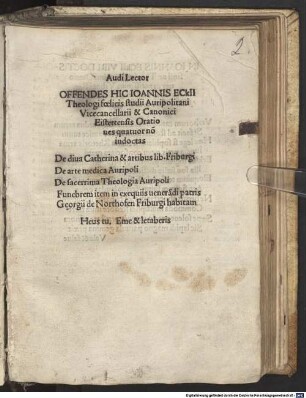 2.
Audi Lector
OFFENDES HIC IOANNIS ECKII
Theologi fœlicis studii Auripolitani
Vicecancellarii & Canonici
Eistettensis Oratio
nes quatuor nō
indoctas
De diua Catherina & artibus lib. Friburgi
De arte medica Auripoli
De sacerrima Theologia Auripoli
Funebrem item in exequiis uenerādi patris
Georgii de Northofen Friburgi habitam
Heus tu, Eme & letaberis